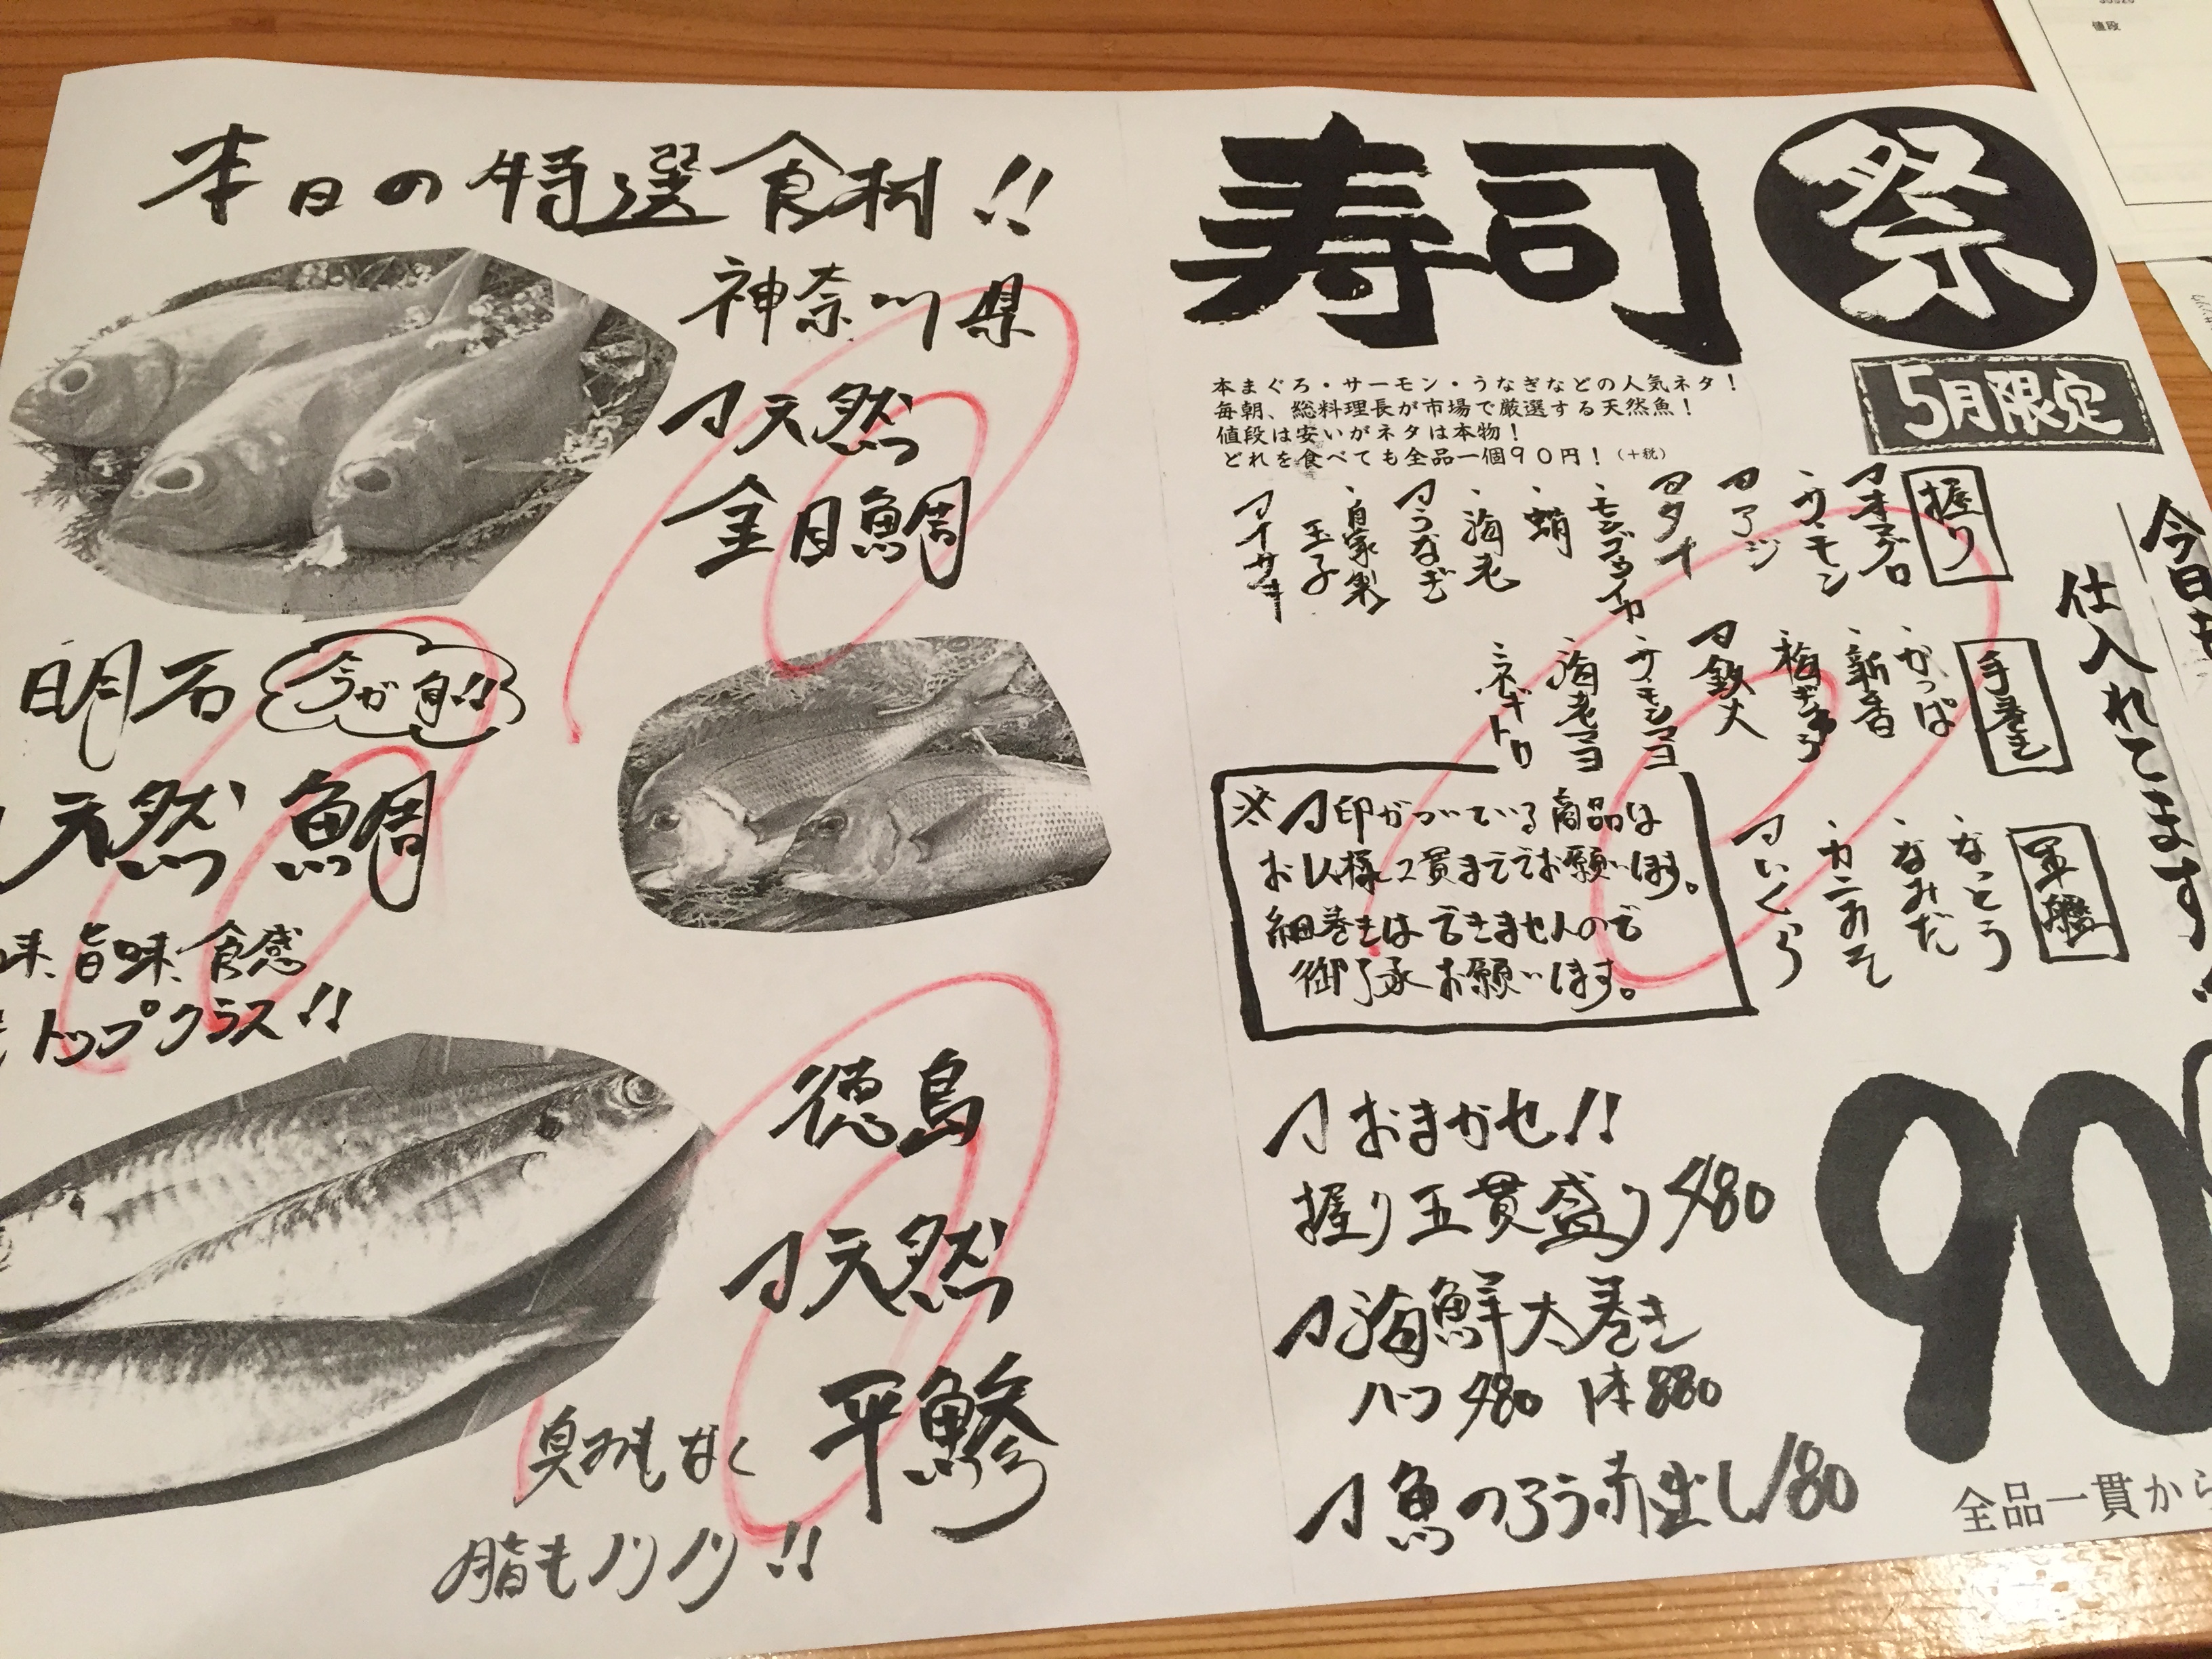 本日の特選食材!!
神奈川県
マ天然
金目鯛
明石
今が旬!!
天然 鯛
味、旨味、食感
トップクラス!!
徳島
マ天然
平鯵
臭みもなく
脂もノリノリ!!
寿司
祭
5月限定
本まぐろ・サーモン・うなぎなどの人気ネタ!
毎朝、総料理長が市場で厳選する天然魚!
値段は安いがネタは本物!
どれを食べても全品一個90円!(+税)
仕入れてます
握り
マ本マグロ
・サーモン
マアジ
マタイ
・モンゴウイカ
・蛸
・海老
マうなぎ
・自家製
玉子
マイサキ
手巻き
・かっぱ
・新香
・梅きゅう
マ鉄火
・サーモンマヨ
・海老マヨ
・ネギトロ
軍艦
・なっとう
・なみだ
・カニみそ
マいくら
※マ印がついている商品は
お1人様2貫まででお願いします。
細巻きはできませんので
御了承お願いします。
マおまかせ!!
握り五貫盛り 480
マ海鮮太巻き
ハーフ 480 1本 880
マ魚のあら赤出し 180
90
全品一貫から
値段